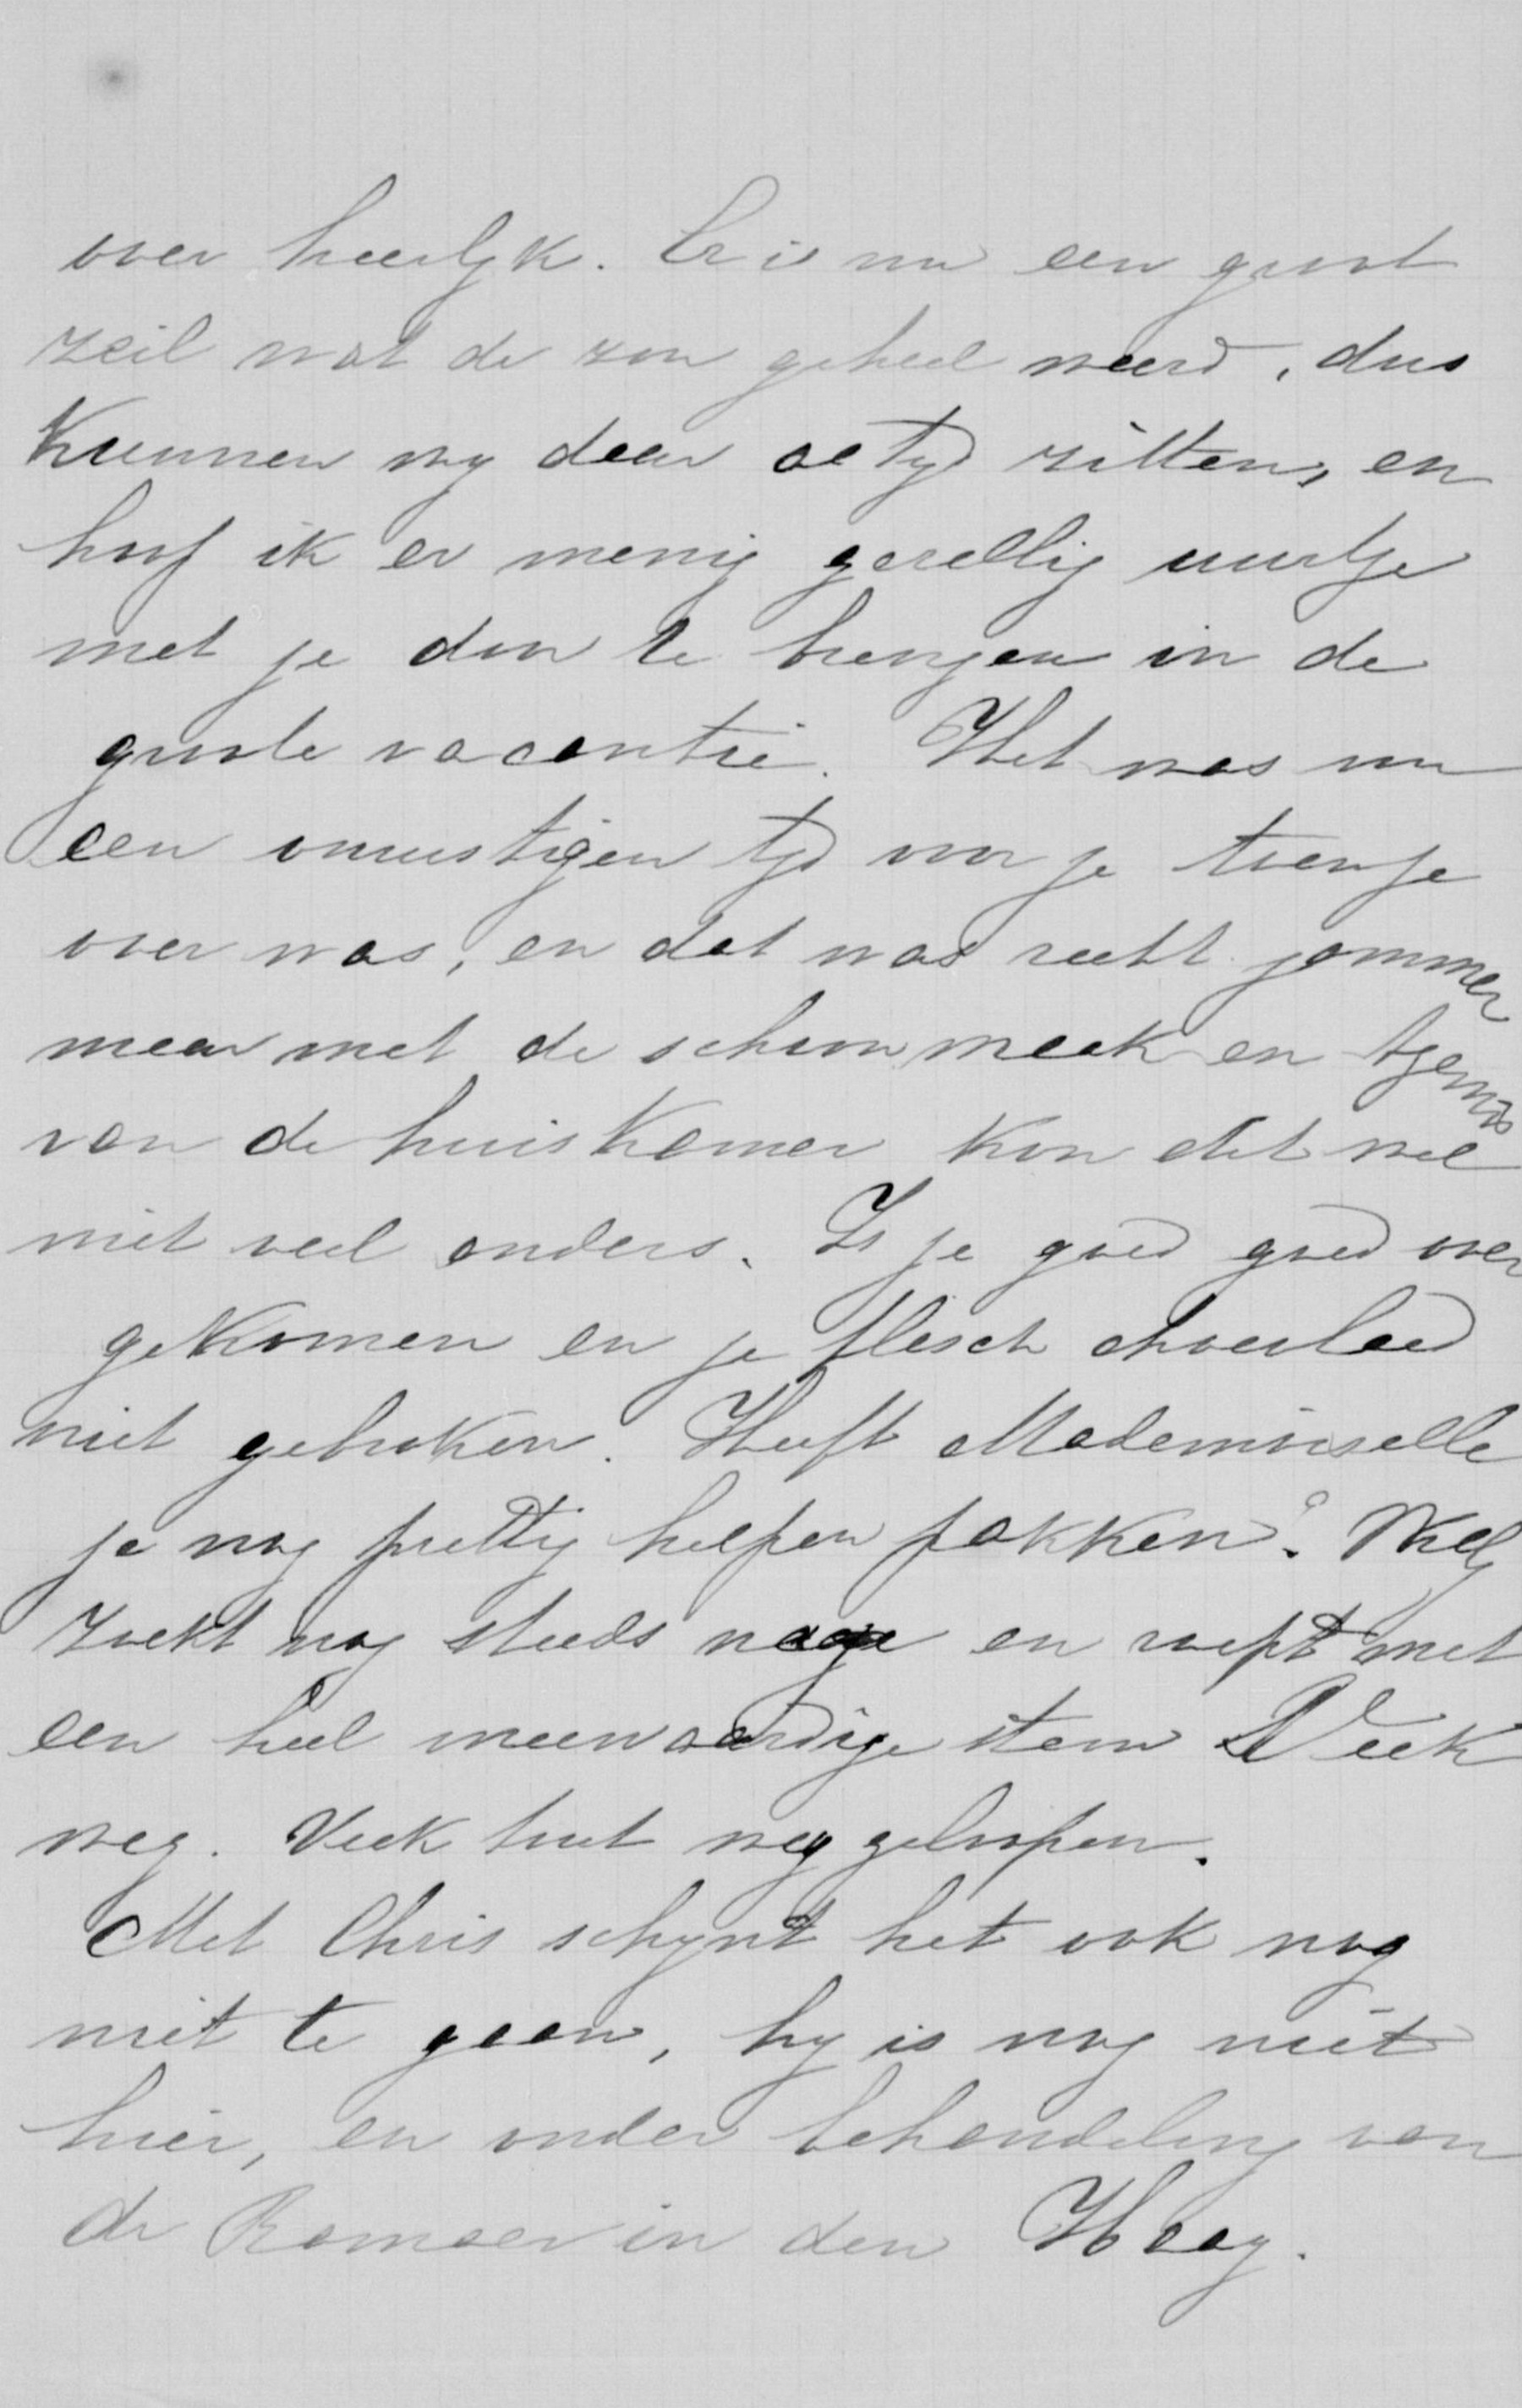 over heerlyk. Er is nu een groot
zeil wat de zon geheel weerd, dus
Kunnen wy daar altyd zitten, en
hoop ik er menig gezellig uurtje
met je door te brengen in de
groote vacantie. Het was nu
een onrustigen tyd voor je toen je
over was, en dat was recht jammer
maar met de schoonmaak en
van de huiskamer kon dit wel
niet veel anders. Is je goed goed over
gekomen en je flesch
niet gebroken. Heeft Mademoiselle
je nog prettig helpen pakken? Melly
zoekt nog steeds naar je en roept met
een heel meewaardige stem Veek
weg. Veek toet weg geloopen.
Met Chris schynt het ook nog
niet te gaan, hy is nog niet
hier, en onder behandeling van
dr Romaer in den Haag.